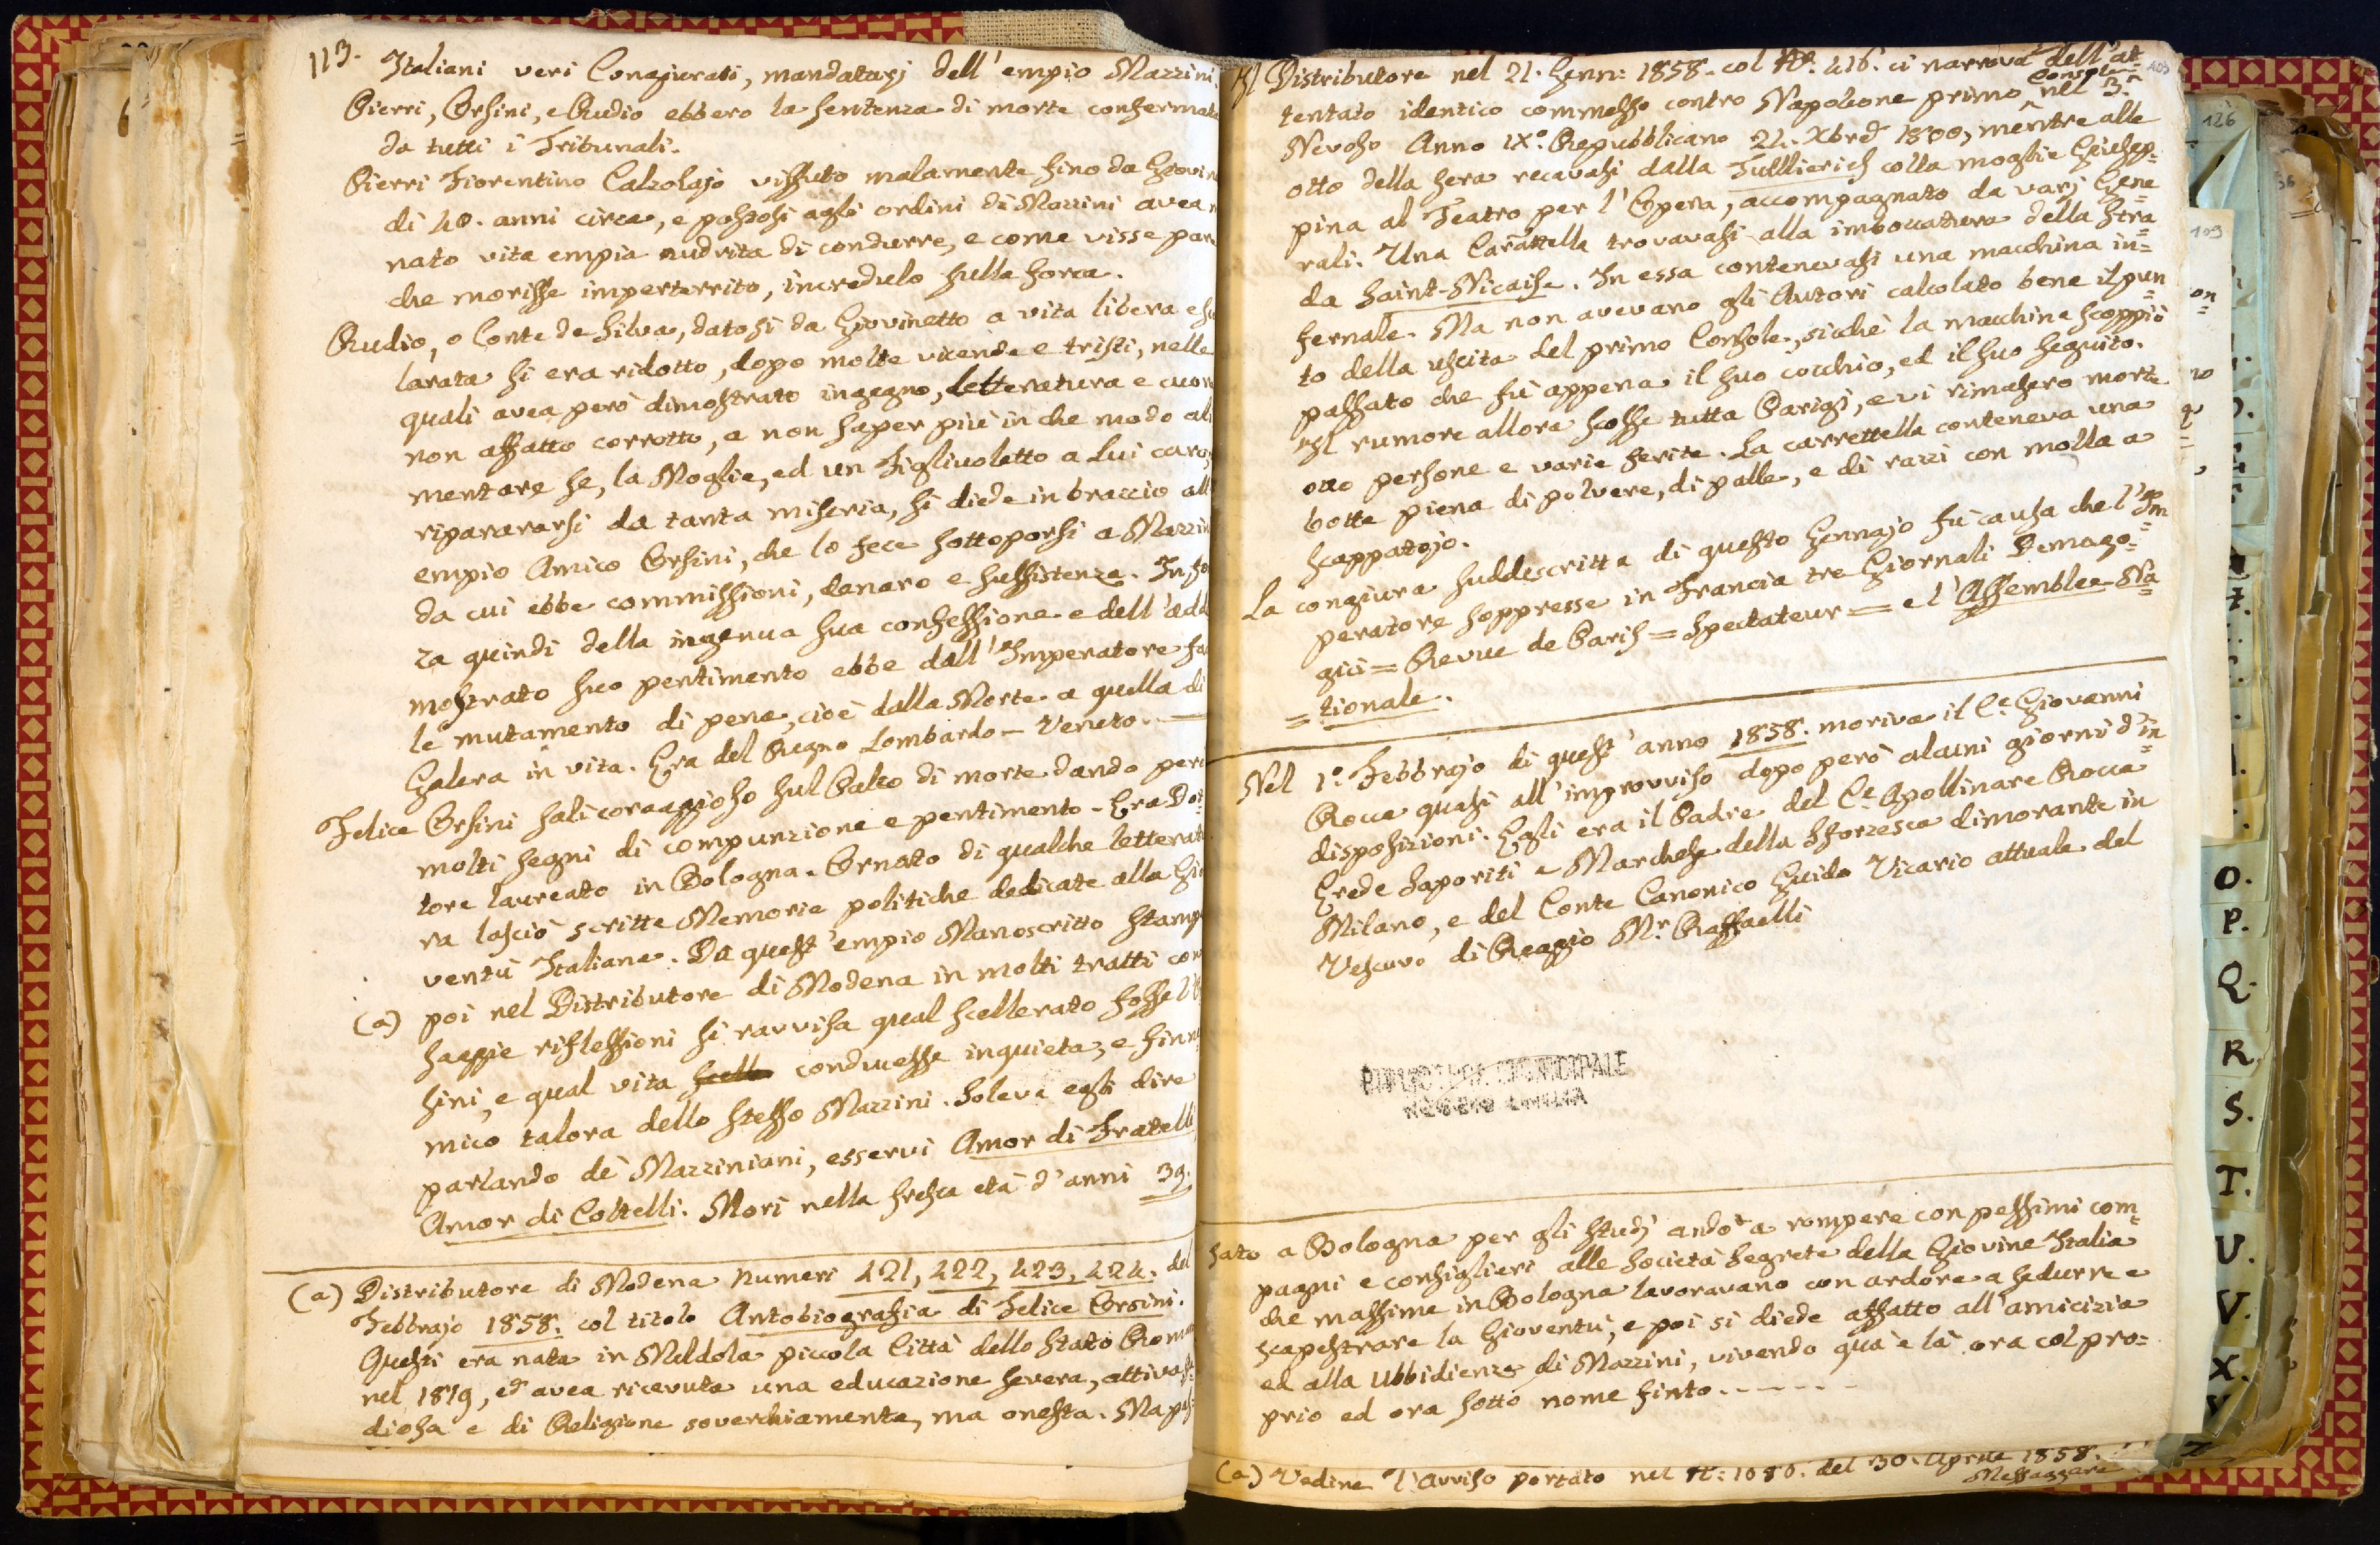 113.
Italiani veri Congiurati, mandatarj dell'empio Mazzini.
Pierri, Orsini, e Rudio ebbero la sentenza di morte confermata
da tutti i Tribunali.
Pierri Fiorentino Calzolajo vissuto malamente fino da Giovin
di 40. anni circa, e postosi agli ordini di Mazzini avea
nato vita empia nudrita di condurre, e come visse par
che morisse imperterrito, incredulo sulla forca.
Rudio, o Conte de Silva, datosi da Giovinetto a vita libera e
larata si era ridotto, dopo molte vicende e tristi, nelle
quali avea però dimostrato ingegno, letteratura e cuore
non affatto corrotto, a non saper più in che modo ali
mentare se, la Moglie, ed un Figlivoletto a Lui caro,
ripararsi da tanta miseria, si diede in braccio all
empio Amico Orsini, che lo fece sottoporsi a Mazzin
da cui ebbe commissioni, denaro e sussistenza. In fo
za quindi della ingenua sua confessione e dell'add
mostrato suo pentimento ebbe dall'Imperatore
le mutamento di pena, cioè dalla Morte a quella di
Galera in vita. Era del Regno Lombardo - Veneto. —
Felice Orsini salì coraggioso sul Palco di morte dando però
molti segni di compunzione e pentimento - Era Dot=
tore laureato in Bologna. Ornato di qualche letteratu
ra lasciò scritte Memorie politiche dedicate alla Gio
ventù Italiana. Da quest'empio Manoscritto stamp
(a) poi nel Distributore di Modena in molti tratti con
saggie riflessioni si ravvisa qual scellerato fosse l'
sini, e qual vita conducesse inquieta, e fin ne
mico talora dello stesso Mazzini. Soleva egli dire
parlando de' Mazziniani, esservi Amor di Fratelli
Amor di Coltelli. Morì nella fresca età d'anni 39.
(a) Distributore di Modena Numeri 421, 422, 423, 424. del
Febbrajo 1858. col titolo Autobiografia di Felice Orsini.
Questi era nato in Meldola piccola Città dello Stato Roman
nel 1819, ed avea ricevuta una educazione severa, attiva
diosa e di Religione soverchiamente, ma onesta. Ma pas=
Il Distributore nel 21. Genn: 1858. col N.° 416. ci narrova dell'at=
tentato identico commesso contro Napoleone primo Console nel 3.°
Nevoso Anno IX.° Repubblicano 24. Xbre 1800, mentre alle
otto della sera recavasi dalla Tulllieries colla moglie Giusep=
pina al Teatro per l'Opera, accompagnato da varj Gene=
rali. Una Carattella trovavasi alla imboccatura della Stra=
da Saint-Nicaise. In essa contenevasi una macchina in=
fernale. Ma non avevano gli Autori calcolato bene il pun=
to della uscita del primo Console, sicchè la macchina scoppiò
passato che fù appena il suo cocchio, ed il suo seguito.
Il rumore allora scosse tutta Parigi, e vi rimasero morte
otto persone e varie ferite. La carrettella conteneva una
botte piena di polvere, di palle, e di razzi con molla a
scappatojo.
La congiura suddescritta di questo Gennajo fù causa che l'Im=
peratore soppresse in Francia tre Giornali Demago=
gici = Revue de Paris = Spectateur = e l'Assemblee Na=
=tionale.
Nel 1.° Febbrajo di quest'anno 1858. moriva il C.e Giovanni
Rocca quasi all'improvviso dopo però alcuni giorni d'in=
disposizioni. Egli era il Padre del C.e Apollinare Rocca
Erede Saporiti e Marchese della Sforzesca dimorante in
Milano, e del Conte Canonico Guido Vicario attuale del
Vescovo di Reggio M.r Raffaelli
BIBLIOTECA MUNICIPALE
REGGIO EMILIA
sato a Bologna per gli studj andò a rompere con pessimi com=
pagni e consiglieri alle Società segrete della Giovine Italia
che massime in Bologna lavoravano con ardore a sedurre e
scapestrare la Gioventù, e poi si diede affatto all'amicizia
ed alla ubbidienza di Mazzini, vivendo quà e là ora col pro=
prio ed ora sotto nome finto. - - - - -
(a) Vedine l'Avviso portato nel N.: 1080. del 30. Aprile 1858.
Messaggere
126
109
O.
P.
Q.
R.
S.
T.
U.
V.
X.
Z